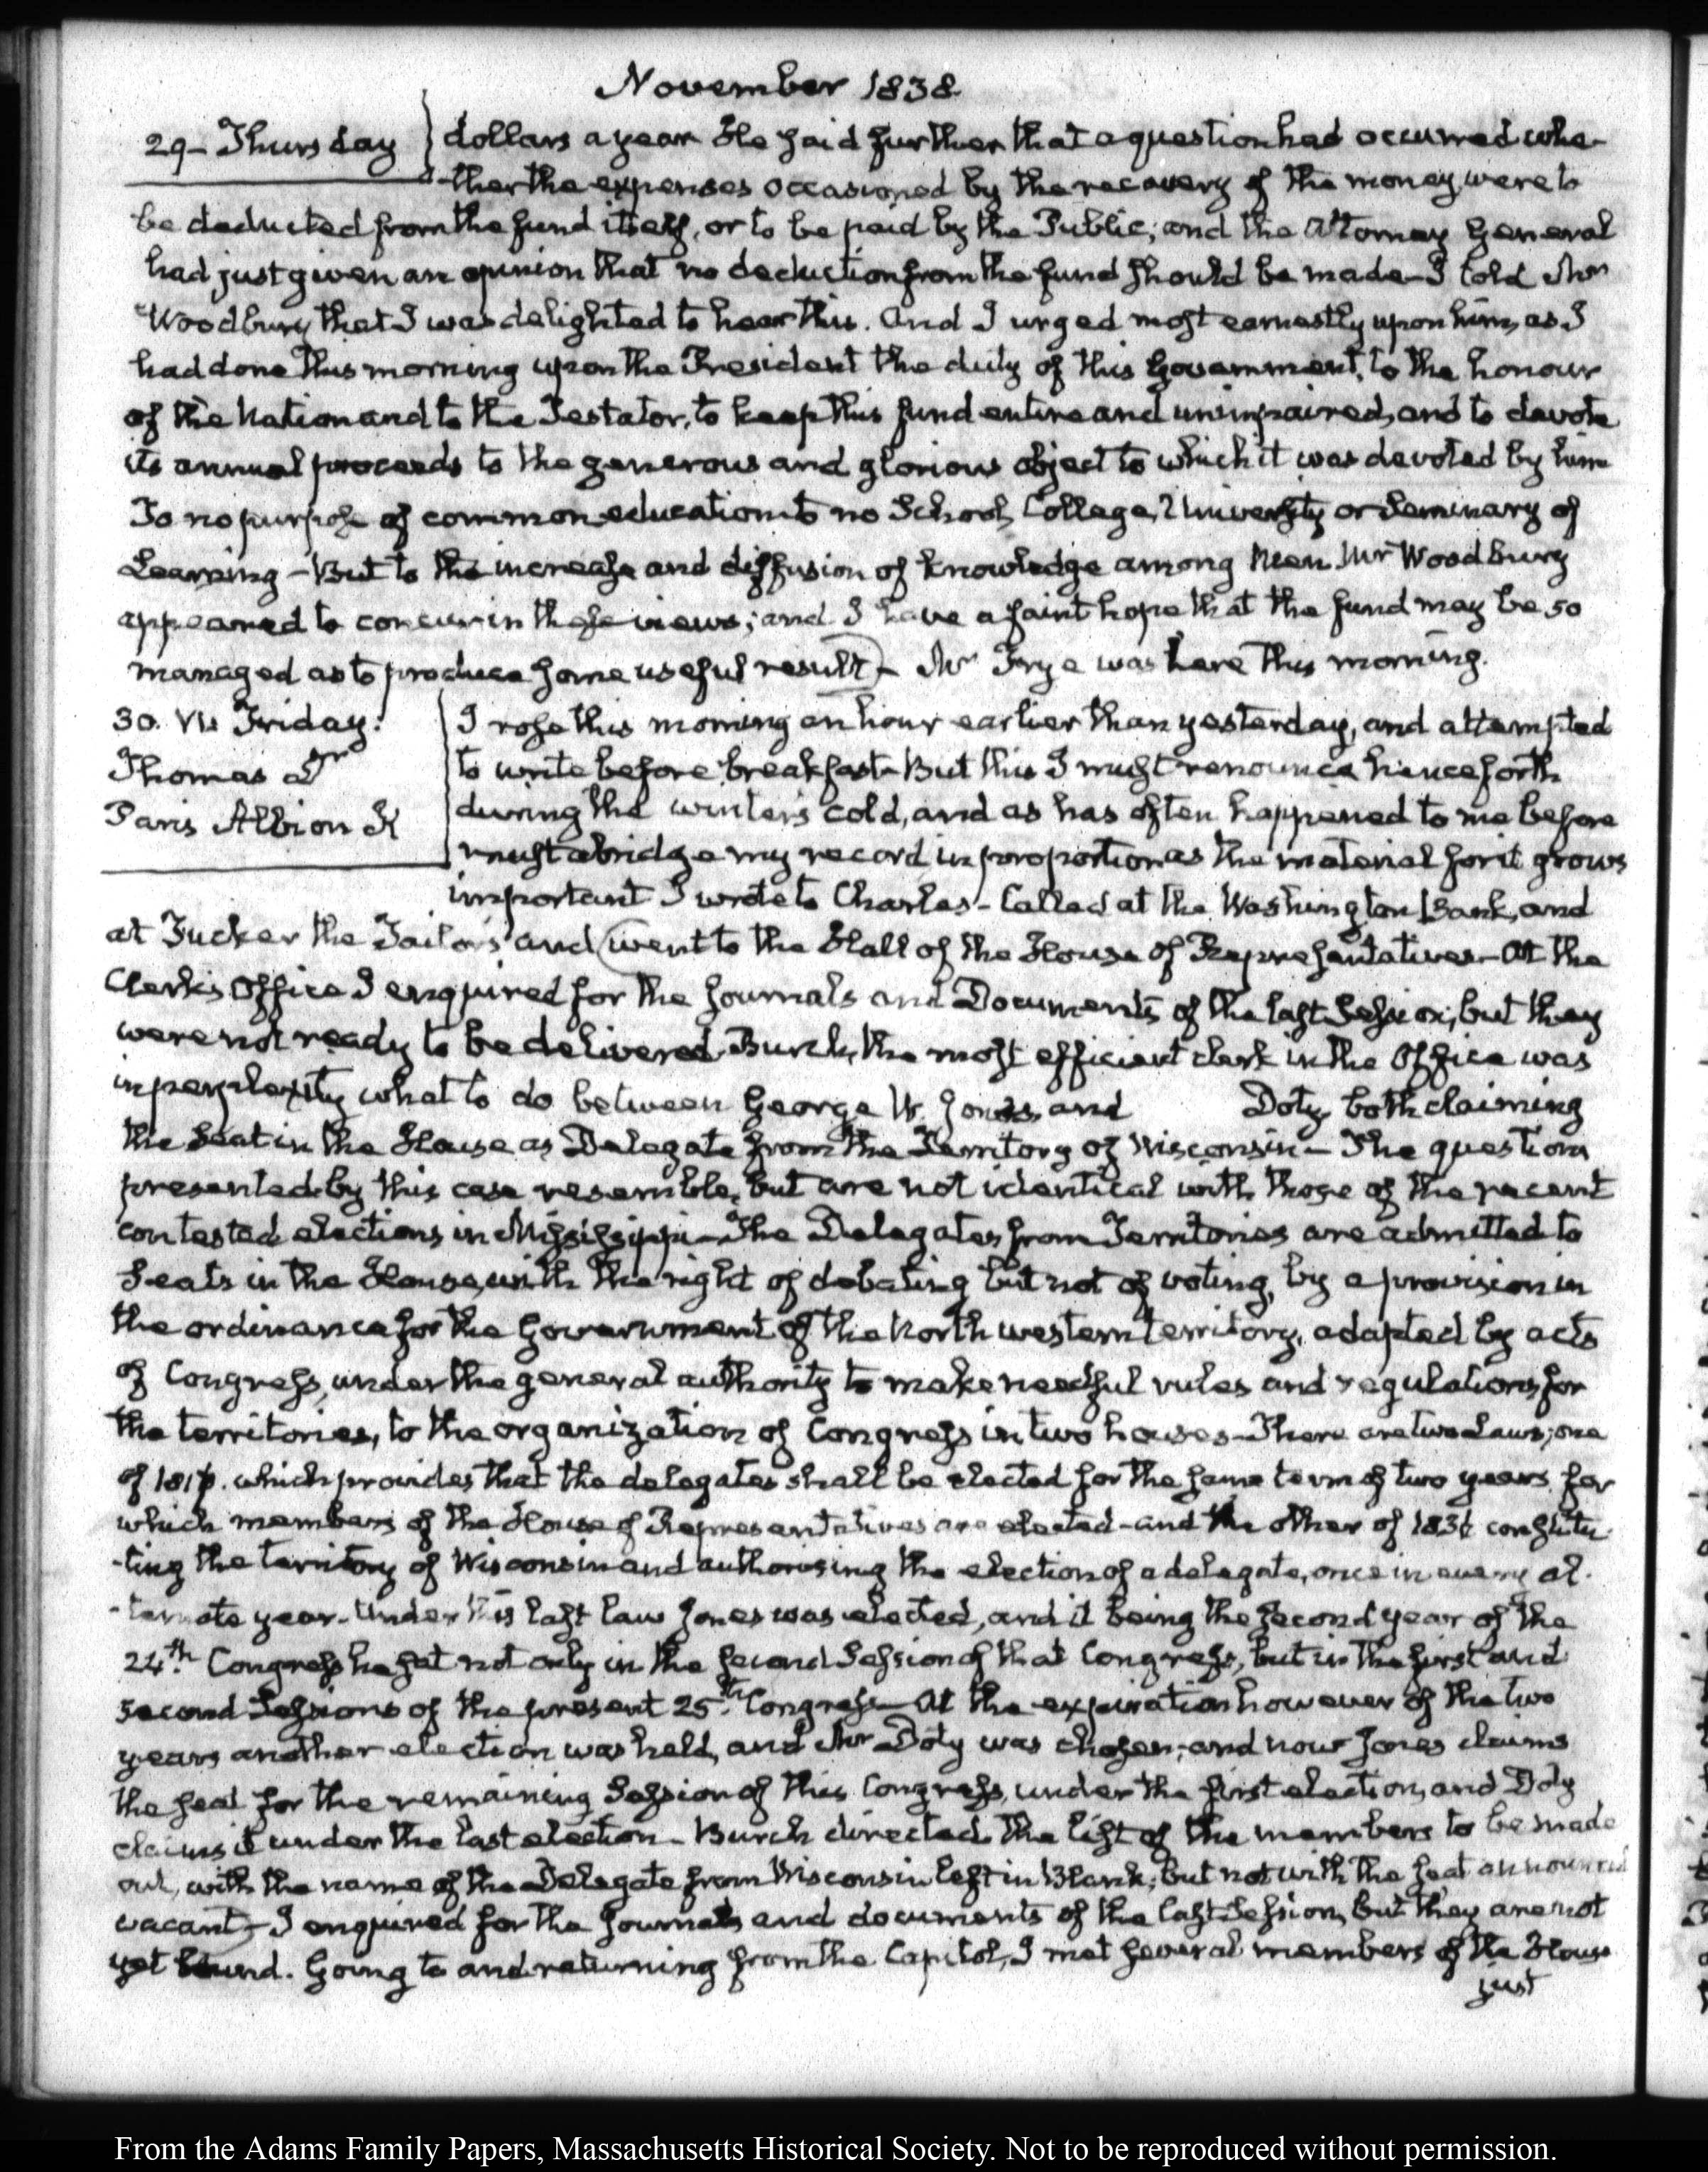 November 1838
29 – Thursday
dollars a year He said further that a question had occurred whe-
-ther the expenses occasioned by the recovery of the money were to
be deducted from the fund itself, or to be paid by the Public; and the Attorney General
had just given an opinion that no deduction from the fund should be made – I told Mr
Woodbury that I was delighted to hear this. And I urged most earnestly upon him, as I
had done this morning upon the President the duty of this Government, to the honour
of the Nation and to the Testator, to keep this fund entire and unimpaired, and to devote
its annual proceeds to the generous and glorious object to which it was devoted by him
To no purpose of common education to no School, College, University or Seminary of
Learning – But to the increase and diffusion of knowledge among Men. Mr Woodbury
appeared to concur in these views; and I have a faint hope that the fund may be so
managed as to produce some useful result – Mr Frye was here this morning.
30. VII. Friday.
Thomas
Paris Albion K
I rose this morning an hour earlier than yesterday, and attempted
to write before breakfast – But this I must renounce henceforth
during the winter's cold, and as has often happened to me before
must abridge my record in proportion as the material for it grows
important I wrote to Charles – Called at the Washington Bank, and
at Tucker the Tailor's and went to the Hall of the House of Representatives – At the
Clerk's Office I enquired for the Journals and Documents of the last Session; but they
were not ready to be delivered. Burch, the most efficient clerk in the Office was
in perplexity what to do between George W. Jones, and Doty, both claiming
the seat in the House as Delegate from the Territory of Wisconsin – The questions
presented by this case resemble, but are not identical with those of the recent
contested elections in Mississippi – The Delegates from Territories are admitted to
Seats in the House, with the right of debating but not of voting, by a provision in
the ordinance for the Government of the North western territory, adapted by acts
of Congress, under the general authority to make needful rules and regulations for
the territories, to the organization of Congress in two houses – There are two Laws; one
of 1817. which provides that the delegates shall be elected for the same term of two years for
which members of the House of Representatives are elected – and the other of 1836 constitu-
-ting the territory of Wisconsin and authorising the election of a delegate, once in every al-
-ternate year – Under this last law Jones was elected, and it being the second year of the
24th. Congress he sat not only in the second Session of that Congress, but in the first and
second Sessions of the present 25th. Congress – At the expiration however of the two
years another election was held, and Mr Doty was chosen; and now Jones claims
the seat for the remaining Session of this Congress, under the first election, and Doty
claims it under the last election – Burch directed the list of the members to be made
out, with the name of the Delegate from Wisconsin left in Blank; but not with the seat announced
vacant – I enquired for the Journals and documents of the last Session, but they are not
yet bound. Going to and returning from the Capitol, I met several members of the House
just
From the Adams Family Papers, Massachusetts Historical Society. Not to be reproduced without permission.